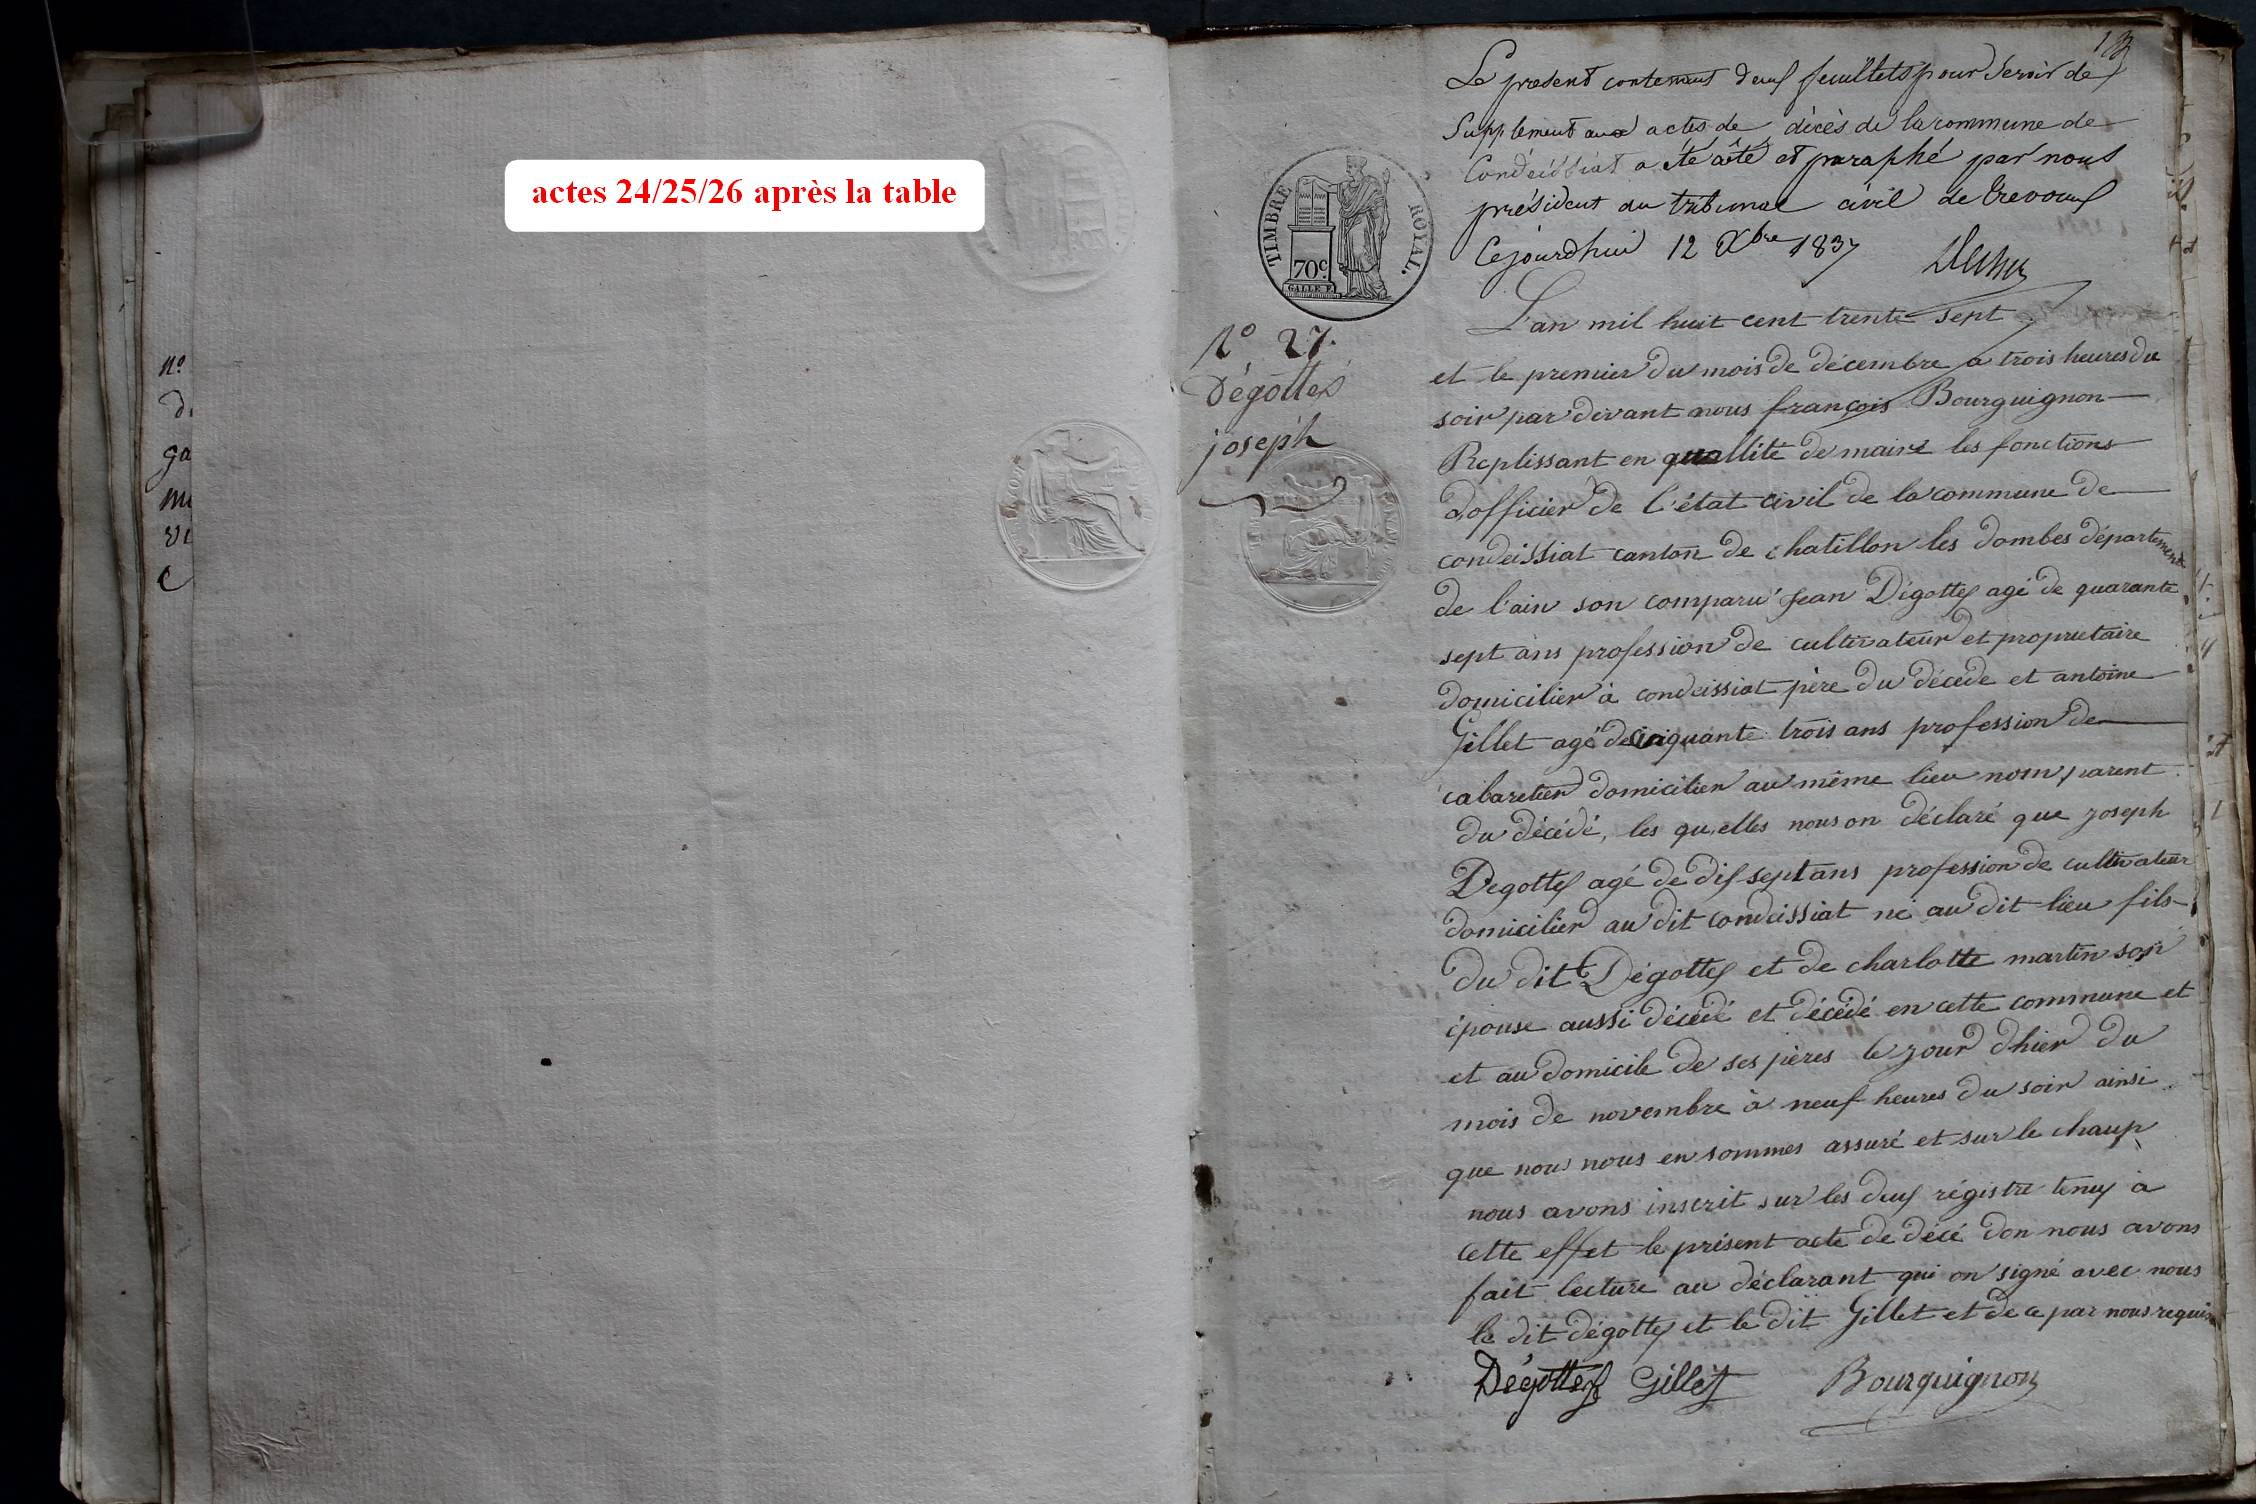 actes 24/25/26 après la table
nº
ga
Le present contenant deux feuillets pour servir de
Supplement aux actes de décès de la commune de
Condeissiat a été côté et paraphé par nous
président du tribunal civil de trevoux
Cejourdhui 12 Xbre 1837
TIMBRE ROYAL.
70c
Nº 27.
Dégottex
joseph
L'an mil huit cent trente sept
et le premier du mois de décembre a trois heures du
soir par devant nous françois Bourguignon
Replissant en quallité de maire les fonctions
d'officier de l'état civil de la commune de
condeissiat canton de chatillon les dombes département
de l'ain son comparu jean Dégottex agé de quarante
sept ans profession de cultivateur et proprietaire
domicilier à condeissiat père du décédé et antoine
Gillet agé de cinquante trois ans profession de
cabaretier domicilier au même lieu nom parent
du décédé, les quelles nous on déclaré que joseph
Degottex agé de dix sept ans profession de cultivateur
domicilier au dit condeissiat né au dit lieu fils
du dit Dégottex et de charlotte martin son
épouse aussi décédé et décédé en cette commune et
et au domicile de ses pères le jour d'hier du
mois de novembre à neuf heures du soir ainsi
que nous nous en sommes assuré et sur le chaup
nous avons inscrit sur les deux régistre tenus à
cette effet le présent acte de décé don nous avons
fait lecture au déclarant qui on signé avec nous
le dit dégottex et le dit Gillet et de ce par nous requis
Dégottex Gillet Bourguignon